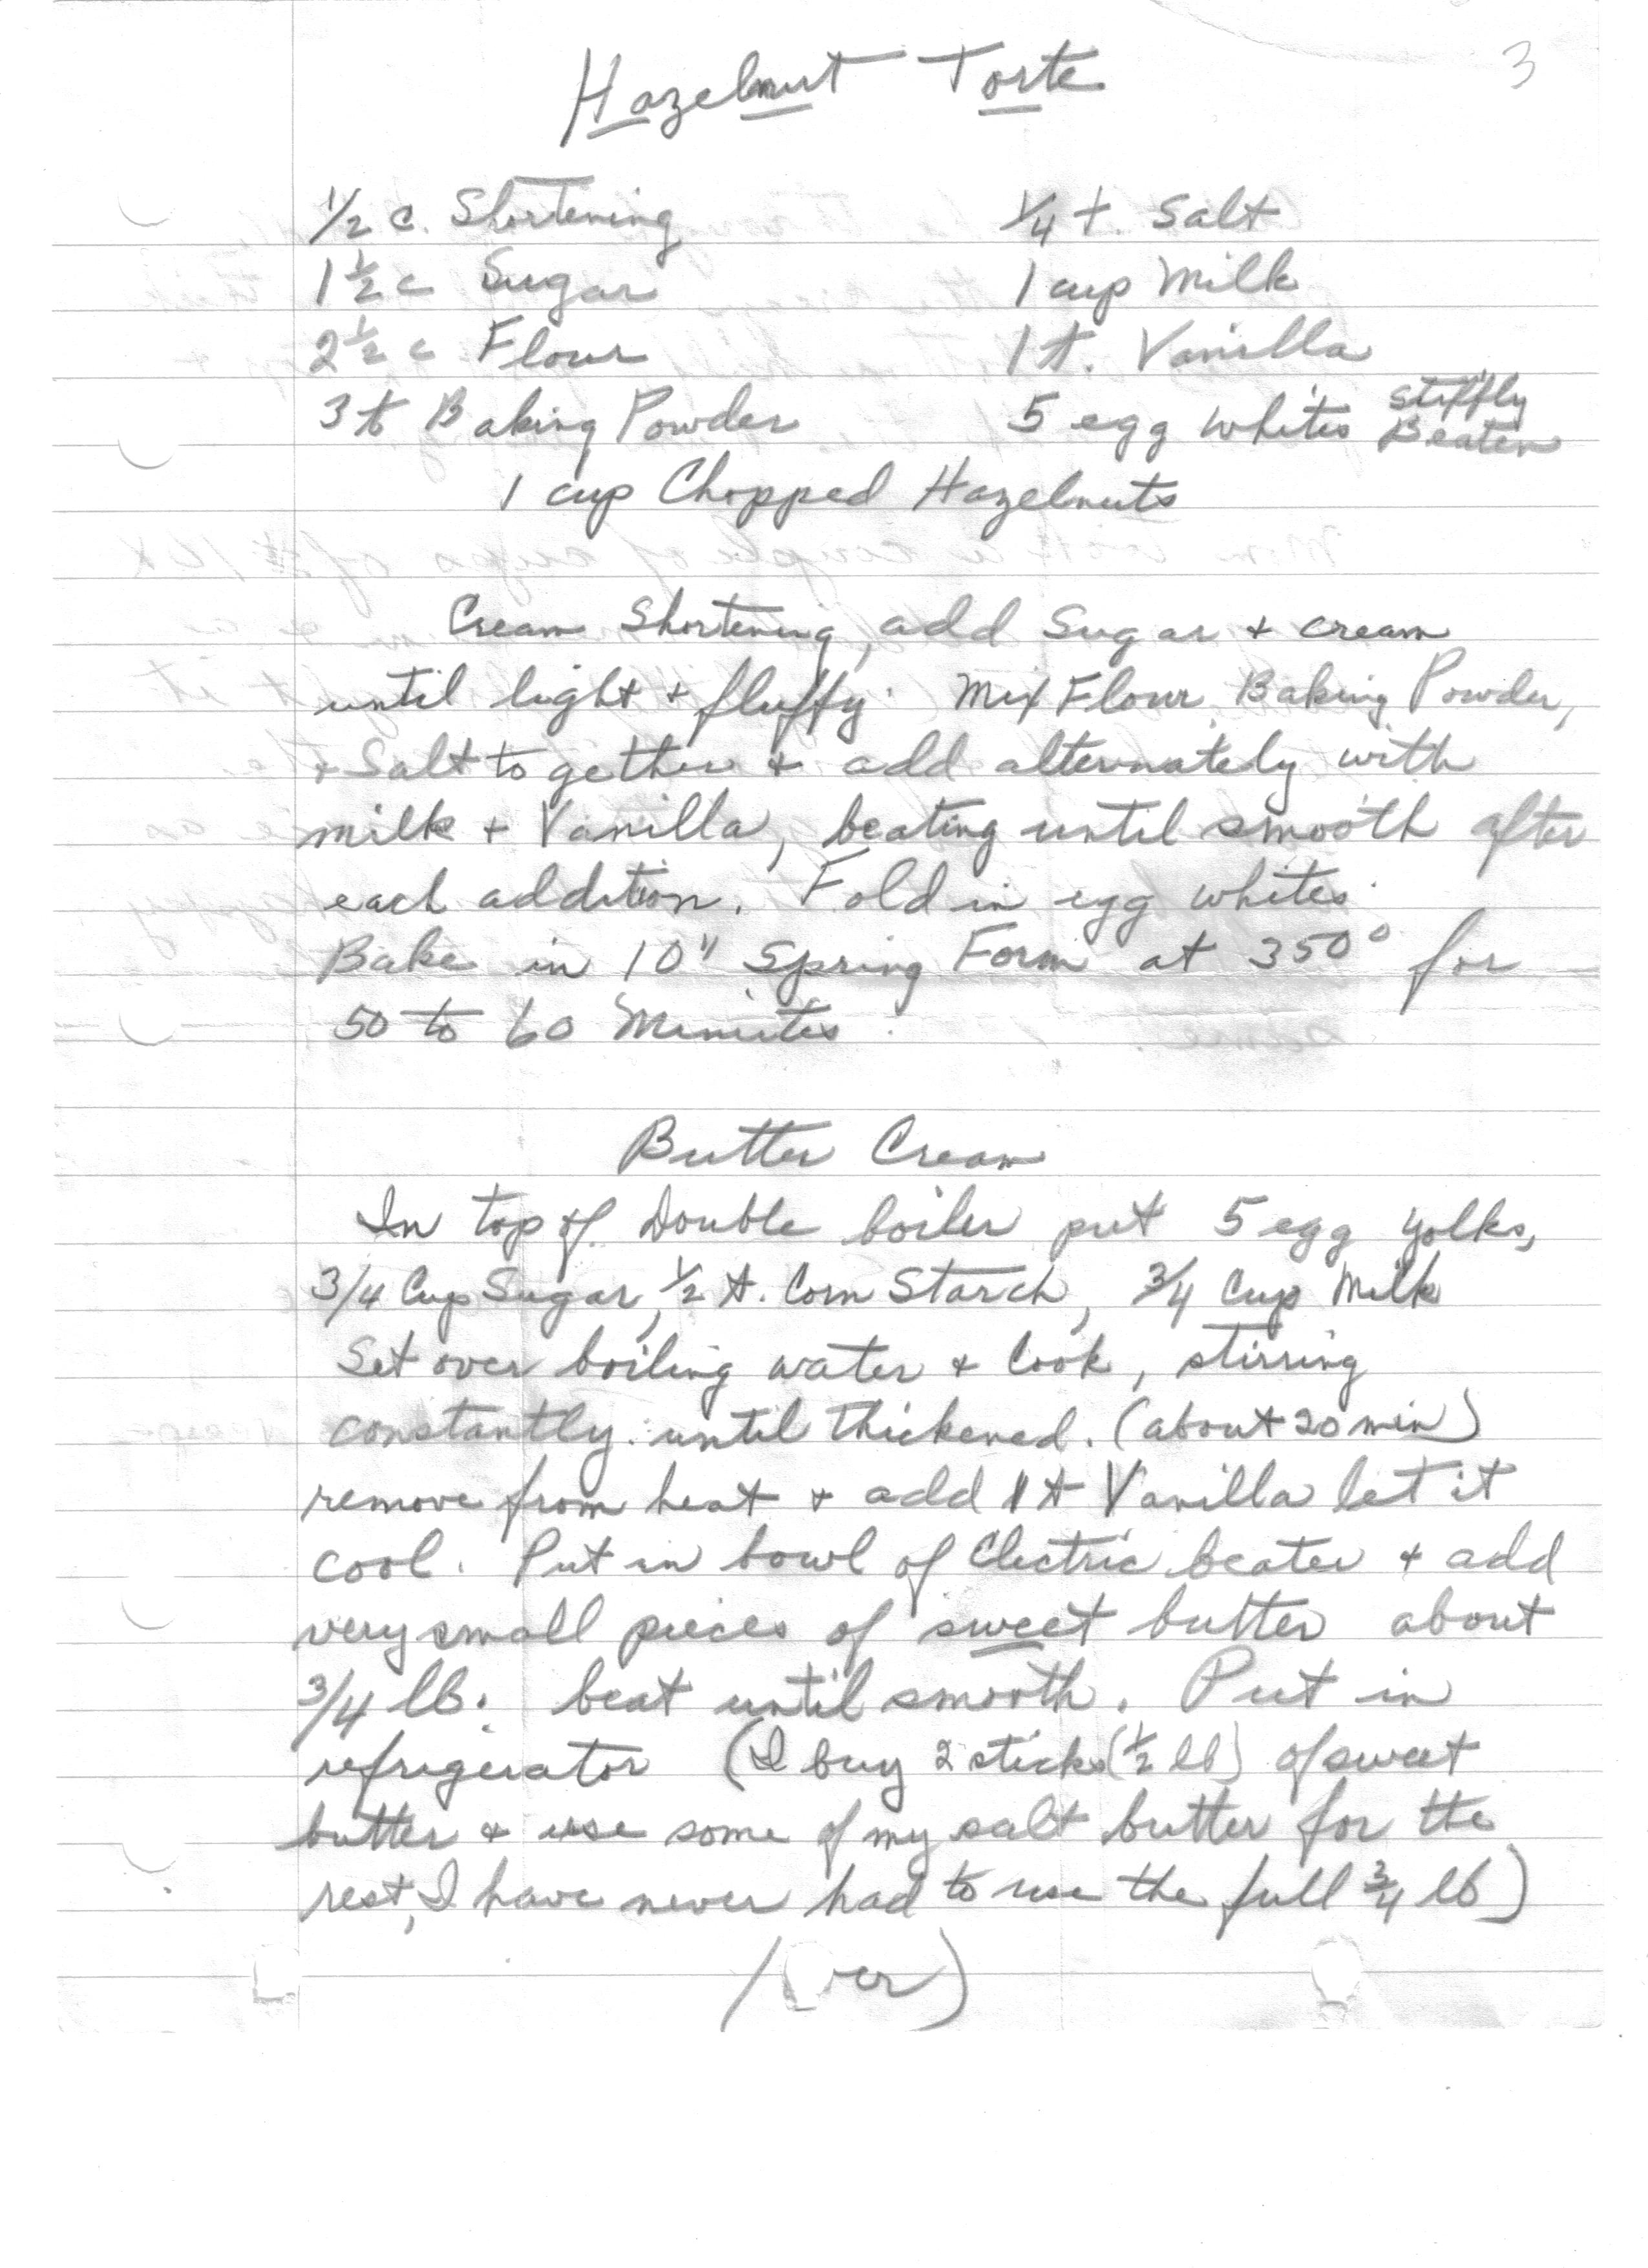 3
Hazelnut Torte
1/2 c. Shortening 1/4 t. Salt
1 1/2 c Sugar 1 cup Milk
2 1/2 c Flour 1 t. Vanilla
3 t Baking Powder 5 egg whites Stiffly Beaten
1 cup Chopped Hazelnuts
Cream Shortening, add Sugar + cream
until light + fluffy. Mix Flour, Baking Powder,
+ Salt together + add alternately with
milk + Vanilla, beating until smooth after
each addition. Fold in egg whites.
Bake in 10" Spring Form at 350° for
50 to 60 Minutes.
Butter Cream
In top of Double boiler put 5 egg yolks,
3/4 Cup Sugar, 1/2 t. Corn Starch, 3/4 Cup Milk
Set over boiling water + Cook, stirring
constantly until thickened. (about 20 min)
remove from heat + add 1 t Vanilla let it
cool. Put in bowl of Electric beater + add
very small pieces of sweet butter about
3/4 lb. beat until smooth. Put in
refrigerator (I buy 2 sticks (1/2 lb) of sweet
butter + use some of my salt butter for the
rest, I have never had to use the full 3/4 lb)
(over)